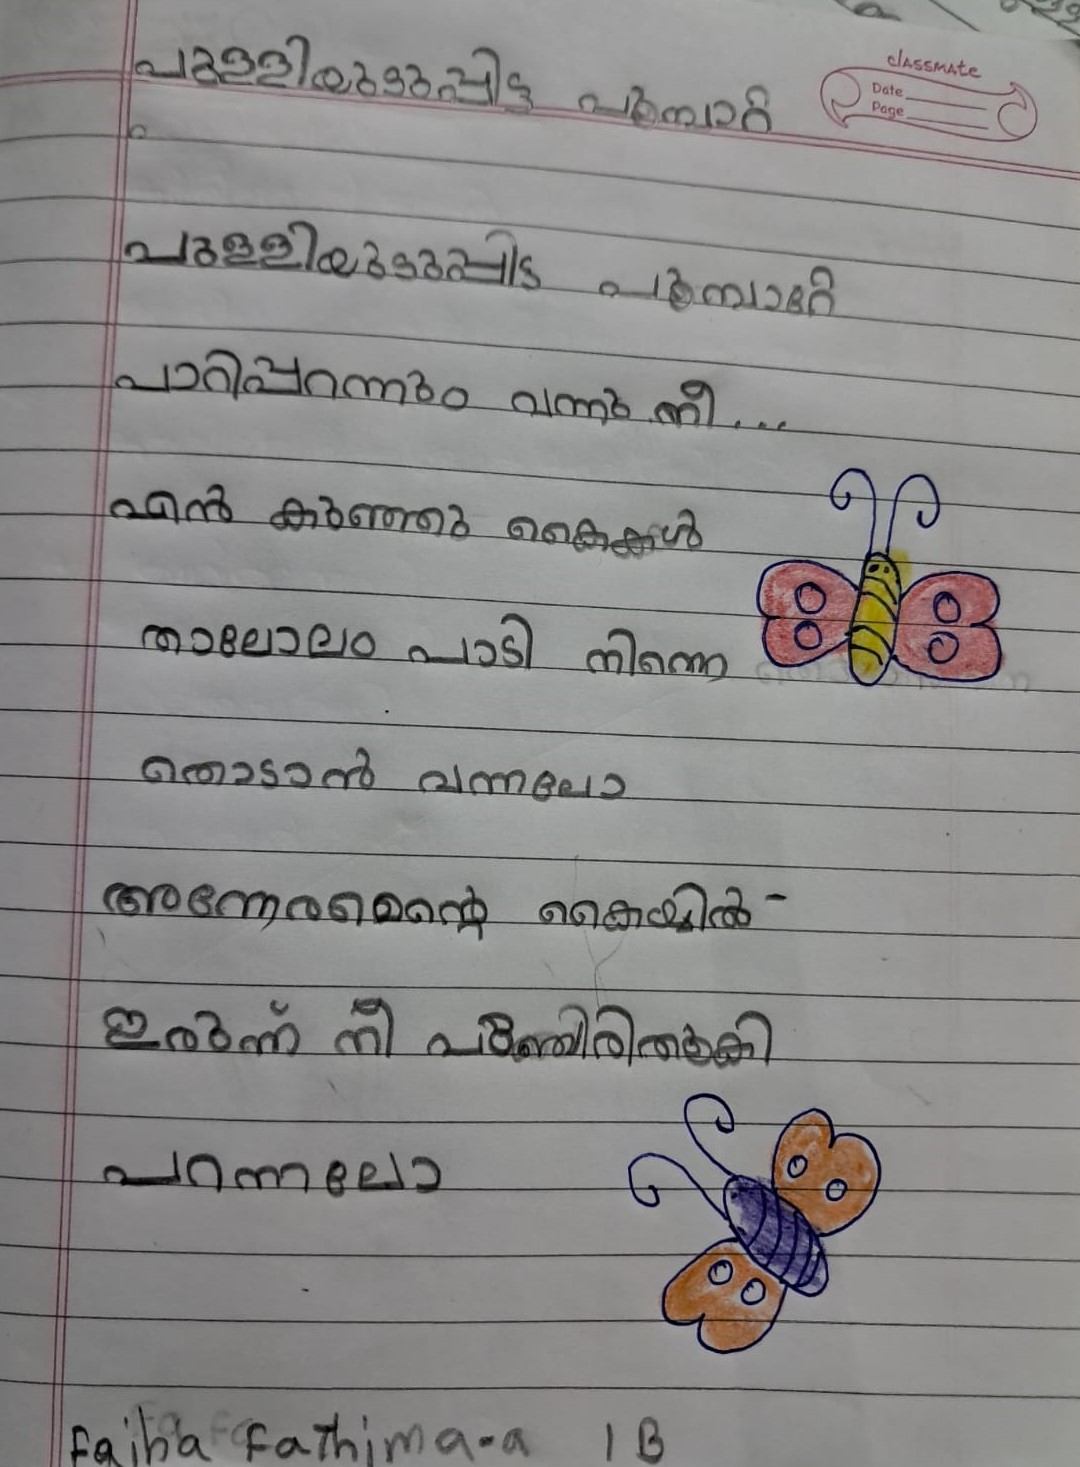 പുള്ളിയുടുപ്പിട്ട പൂമ്പാറ്റ
classmate
Date
Page
പുള്ളിയുടുപ്പിട്ട പൂമ്പാറ്റേ
പാറിപ്പറന്നും വന്നു നീ...
എൻ കുഞ്ഞു കൈകൾ
താലോലം പാടി നിന്നെ
തൊടാൻ വന്നലോ
അന്നേരമെന്റെ കൈയ്യിൽ-
ഇരുന്ന് നീ പുഞ്ചിരിതൂകി
പറന്നലോ
Fajha Fathima.a 1 B